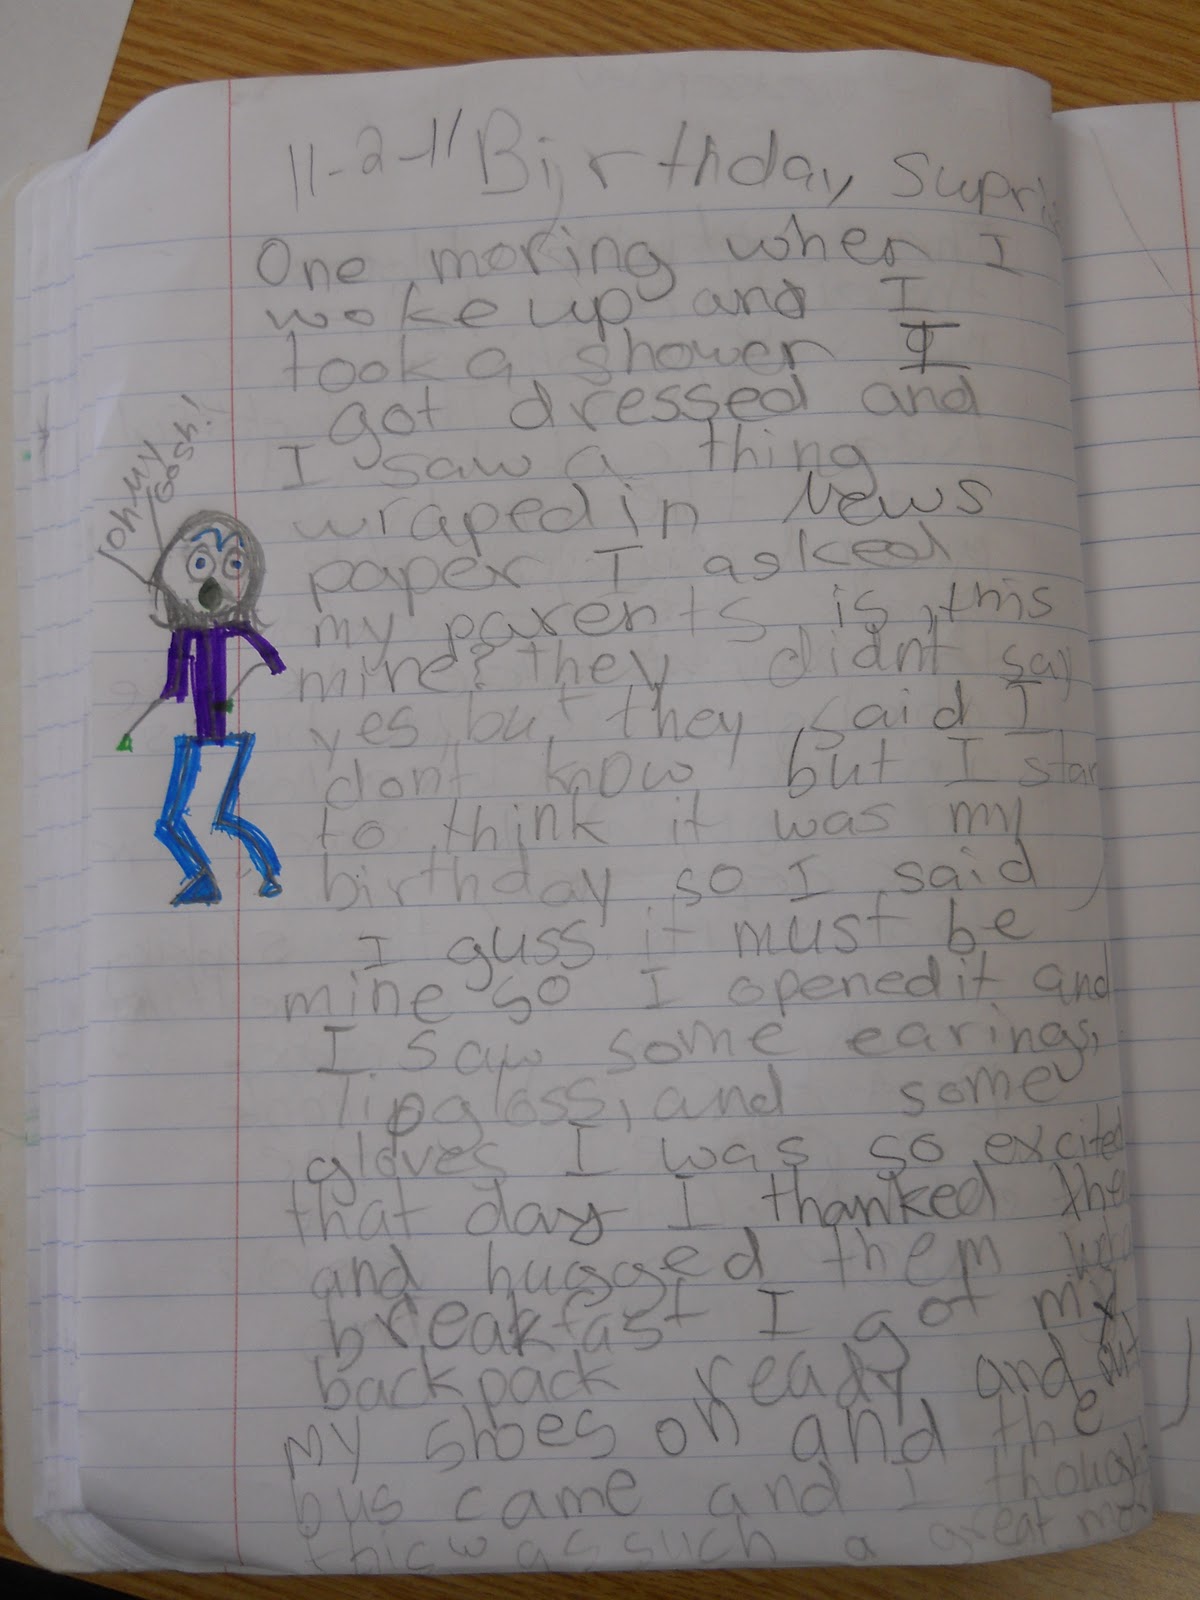 11-2-11 Birthday Supri
One moring when I
woke up and I
took a shower I
got dressed and
I saw a thing
wraped in News
paper I asked
my parents is this
mine? they didnt say
yes but they said I
dont know but I star
to think it was my
birthday so I said,
I guss it must be
mine so I opened it and
I saw some earings,
lipgloss, and some
gloves I was so excited
that day I thanked the
and hugged them
breakfast I got my
backpack ready and put
my shoes on and the
bus came and I though
this was such a great mor
oh my
Gosh!